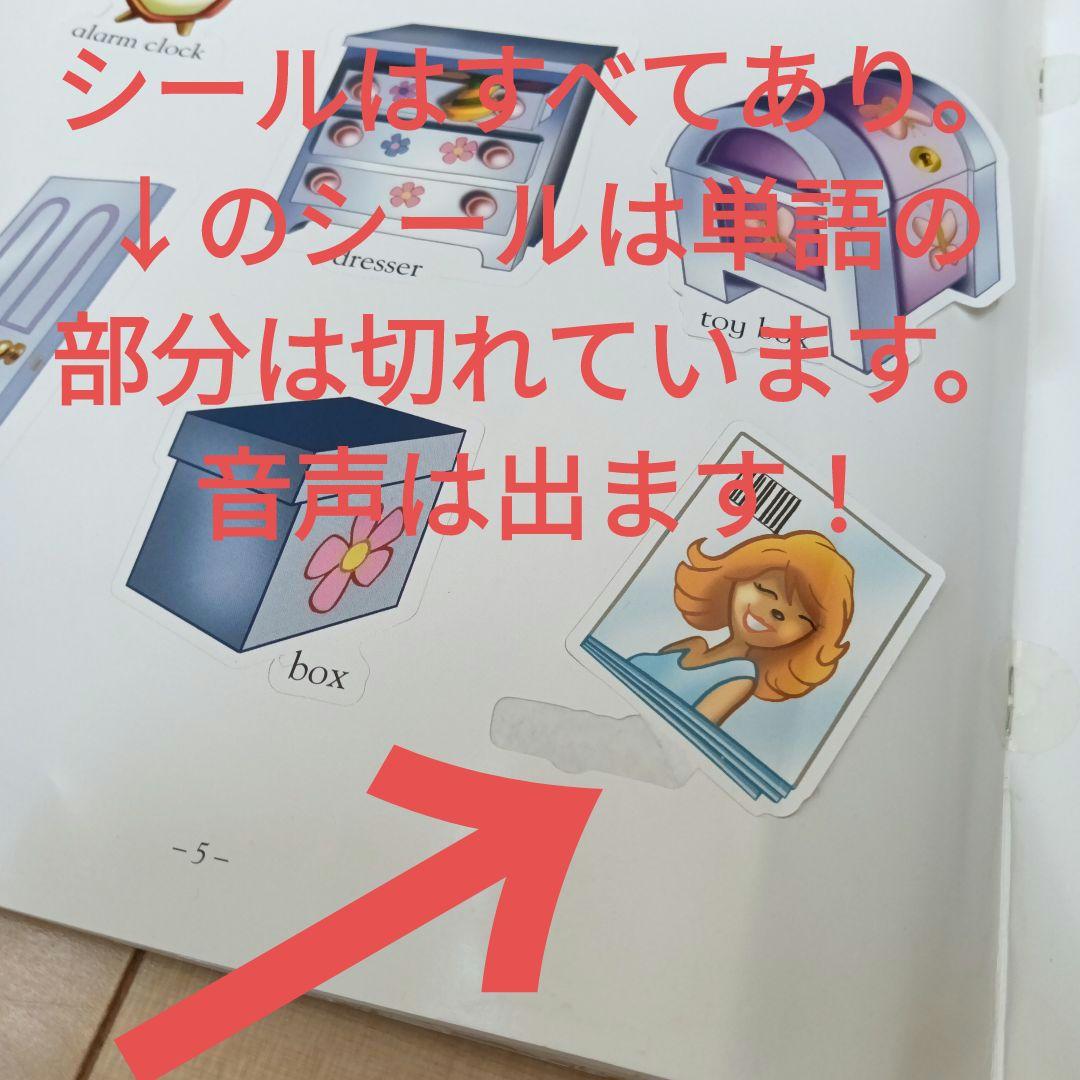 alarm clock
シールはすべてあり。
↓のシールは単語の
dresser
toy box
部分は切れています。
音声は出ます！
box
– 5 –